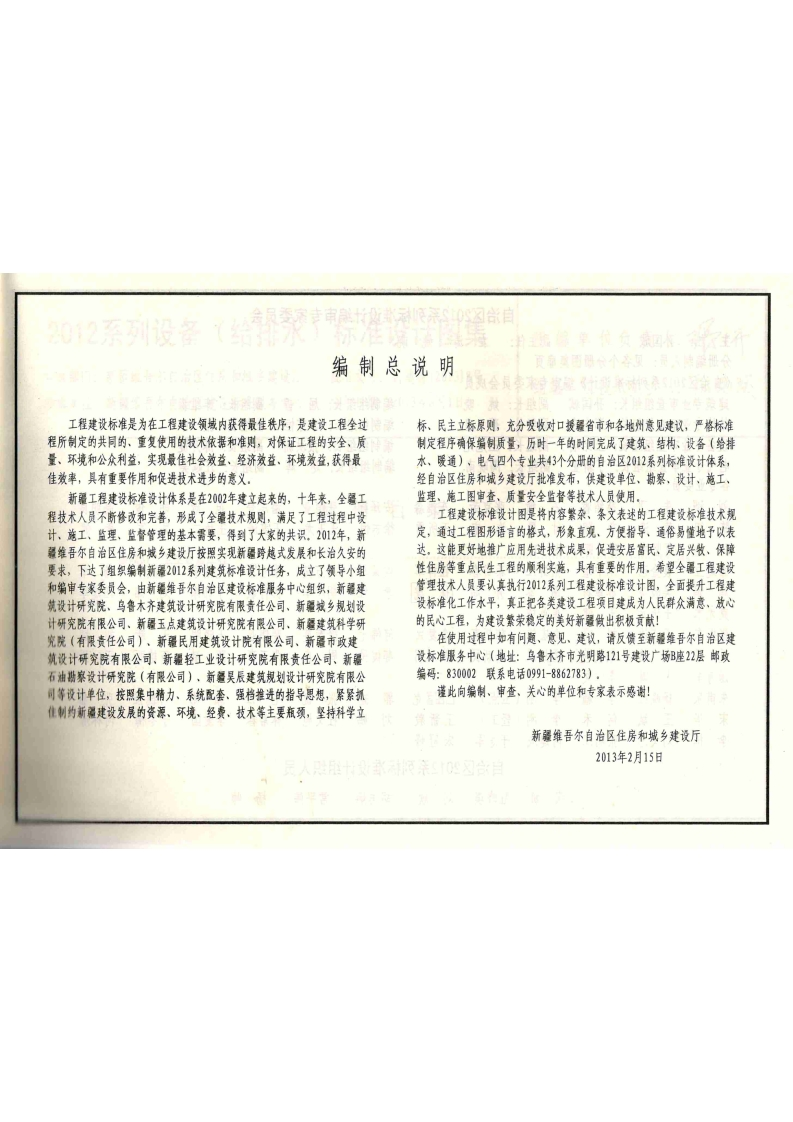 编制总说明
工程建设标准是为在工程建设领域内获得最佳秩序，是建设工程全过
程所制定的共同的、重复使用的技术依据和准则，对保证工程的安全、质
量、环境和公众利益，实现最佳社会效益、经济效益、环境效益,获得最
佳效率，具有重要作用和促进技术进步的意义。
新疆工程建设标准设计体系是在2002年建立起来的，十年来，全疆工
程技术人员不断修改和完善，形成了全疆技术规则，满足了工程过程中设
计、施工、监理、监督管理的基本需要，得到了大家的共识。2012年，新
疆维吾尔自治区住房和城乡建设厅按照实现新疆跨越式发展和长治久安的
要求，下达了组织编制新疆2012系列建筑标准设计任务，成立了领导小组
和编审专家委员会，由新疆维吾尔自治区建设标准服务中心组织，新疆建
筑设计研究院、乌鲁木齐建筑设计研究院有限责任公司、新疆城乡规划设
计研究院有限公司、新疆玉点建筑设计研究院有限公司、新疆建筑科学研
究院（有限责任公司）、新疆民用建筑设计院有限公司、新疆市政建
筑设计研究院有限公司、新疆轻工业设计研究院有限责任公司、新疆
石油勘察设计研究院（有限公司）、新疆昊辰建筑规划设计研究院有限公
司等设计单位，按照集中精力、系统配套、强档推进的指导思想，紧紧抓
住制约新疆建设发展的资源、环境、经费、技术等主要瓶颈，坚持科学立
标、民主立标原则，充分吸收对口援疆省市和各地州意见建议，严格标准
制定程序确保编制质量，历时一年的时间完成了建筑、结构、设备（给排
水、暖通）、电气四个专业共43个分册的自治区2012系列标准设计体系，
经自治区住房和城乡建设厅批准发布，供建设单位、勘察、设计、施工、
监理、施工图审查、质量安全监督等技术人员使用。
工程建设标准设计图是将内容繁杂、条文表述的工程建设标准技术规
定，通过工程图形语言的格式，形象直观、方便指导、通俗易懂地予以表
达。这能更好地推广应用先进技术成果，促进安居富民、定居兴牧、保障
性住房等重点民生工程的顺利实施，具有重要的作用。希望全疆工程建设
管理技术人员要认真执行2012系列工程建设标准设计图，全面提升工程建
设标准化工作水平，真正把各类建设工程项目建成为人民群众满意、放心
的民心工程，为建设繁荣稳定的美好新疆做出积极贡献！
在使用过程中如有问题、意见、建议，请反馈至新疆维吾尔自治区建
设标准服务中心（地址：乌鲁木齐市光明路121号建设广场B座22层 邮政
编码：830002 联系电话0991-8862783）。
谨此向编制、审查、关心的单位和专家表示感谢！
新疆维吾尔自治区住房和城乡建设厅
2013年2月15日